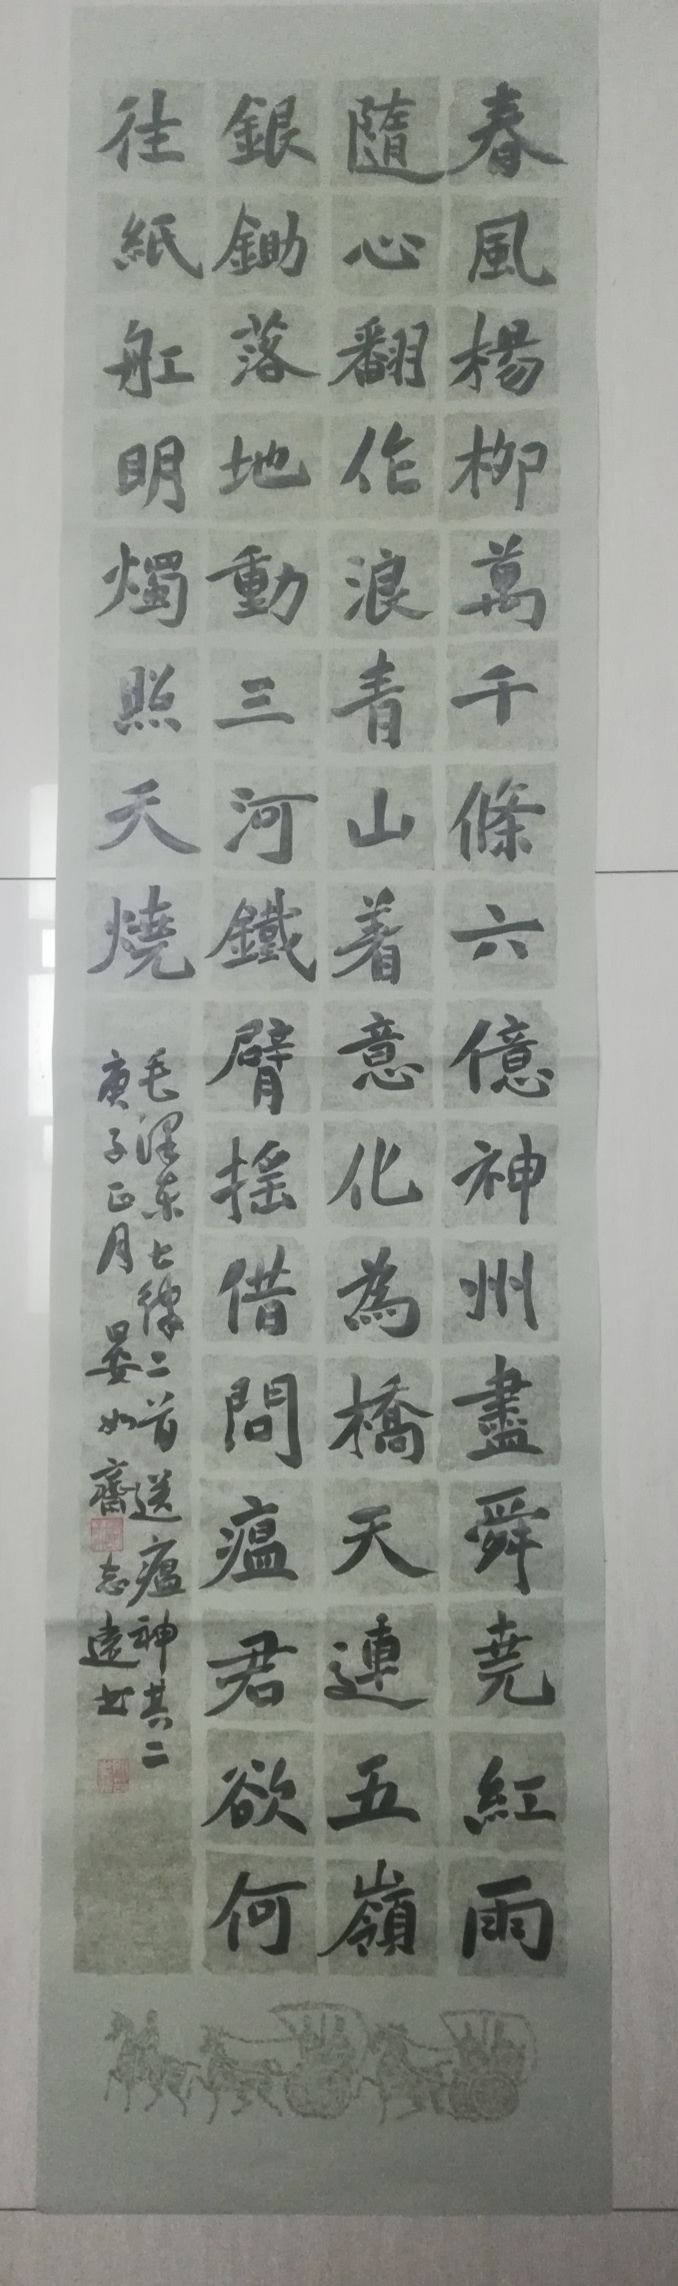 春風楊柳萬千條六億神州盡舜尭紅雨
隨心翻作浪青山着意化為橋天連五嶺
銀鋤落地動三河鐵臂摇借問瘟君欲何
往紙舡明燭照天燒
毛澤东七律二首送瘟神其二
庚子正月晏如齋志遠书